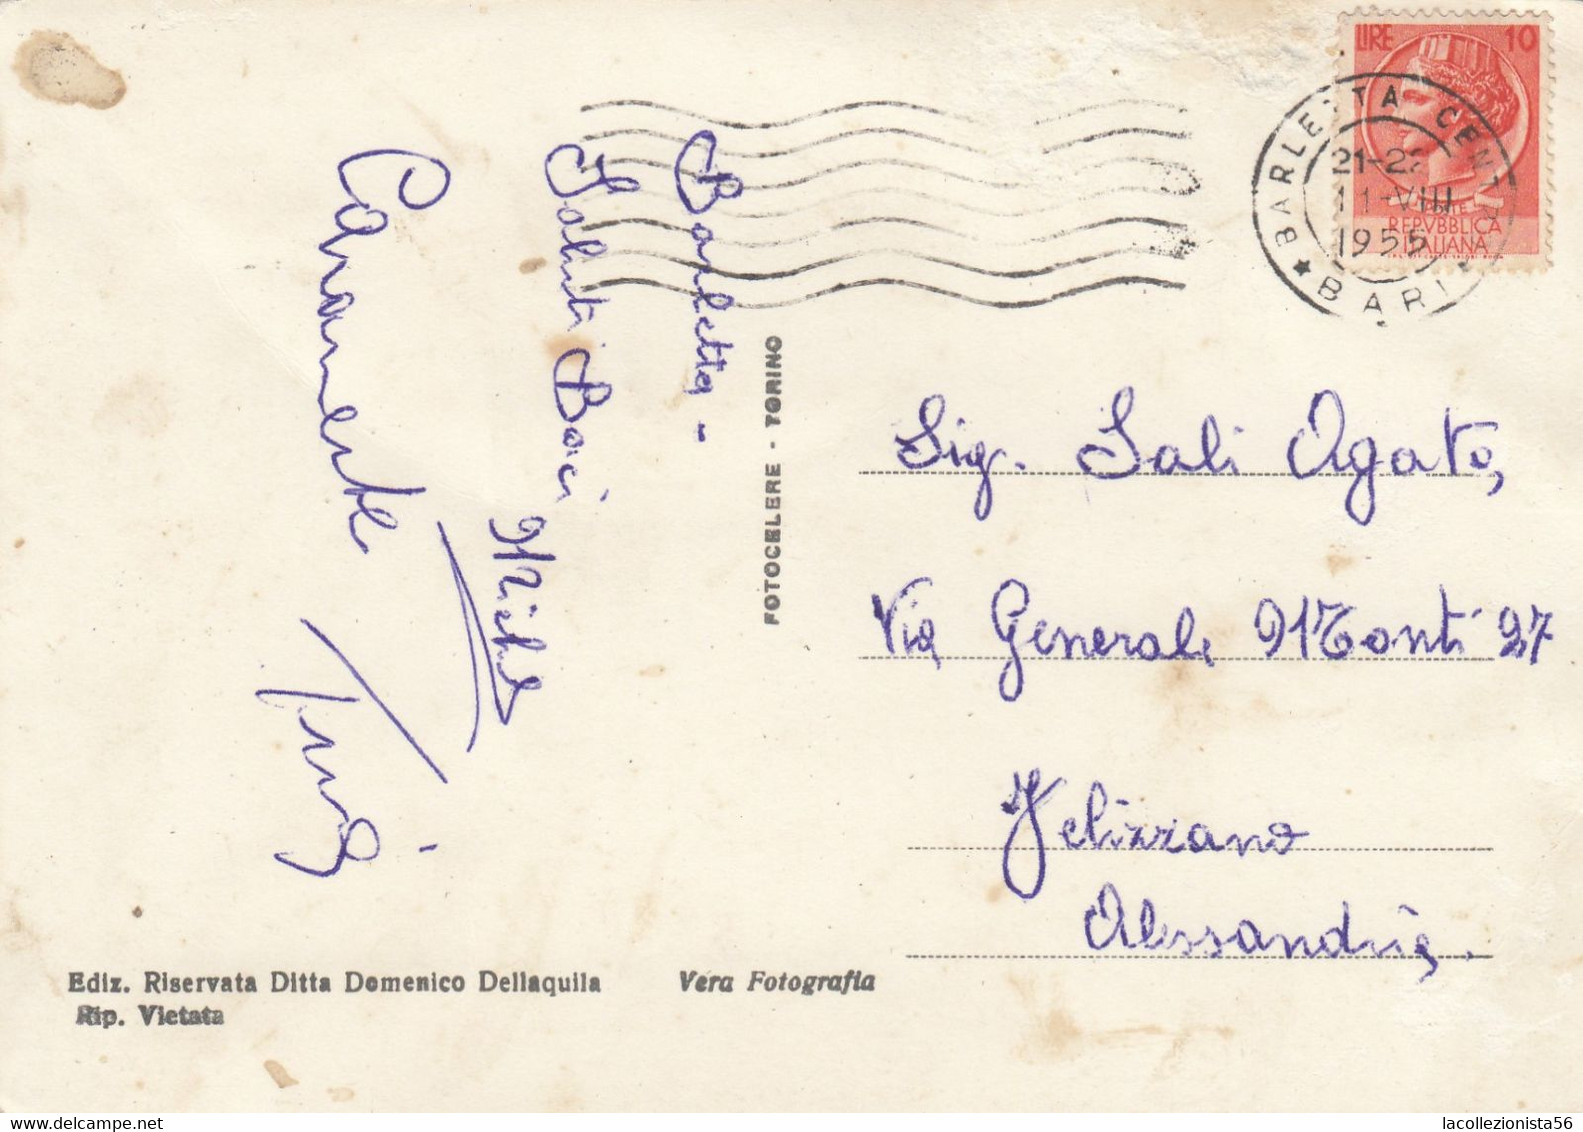 LIRE 10
POSTE
REPVBBLICA
ITALIANA
BARLETTA CENTR
21-22
11-VIII
1955
★ BARI
Barletta -
Saluti Baci
Michele
Caramente
FOTOCELERE - TORINO
Sig. Sali Agata,
Via Generale Monti 27
Felizzano
Alessandria.
Ediz. Riservata Ditta Domenico Dellaquila
Rip. Vietata
Vera Fotografia
lacollezionista56